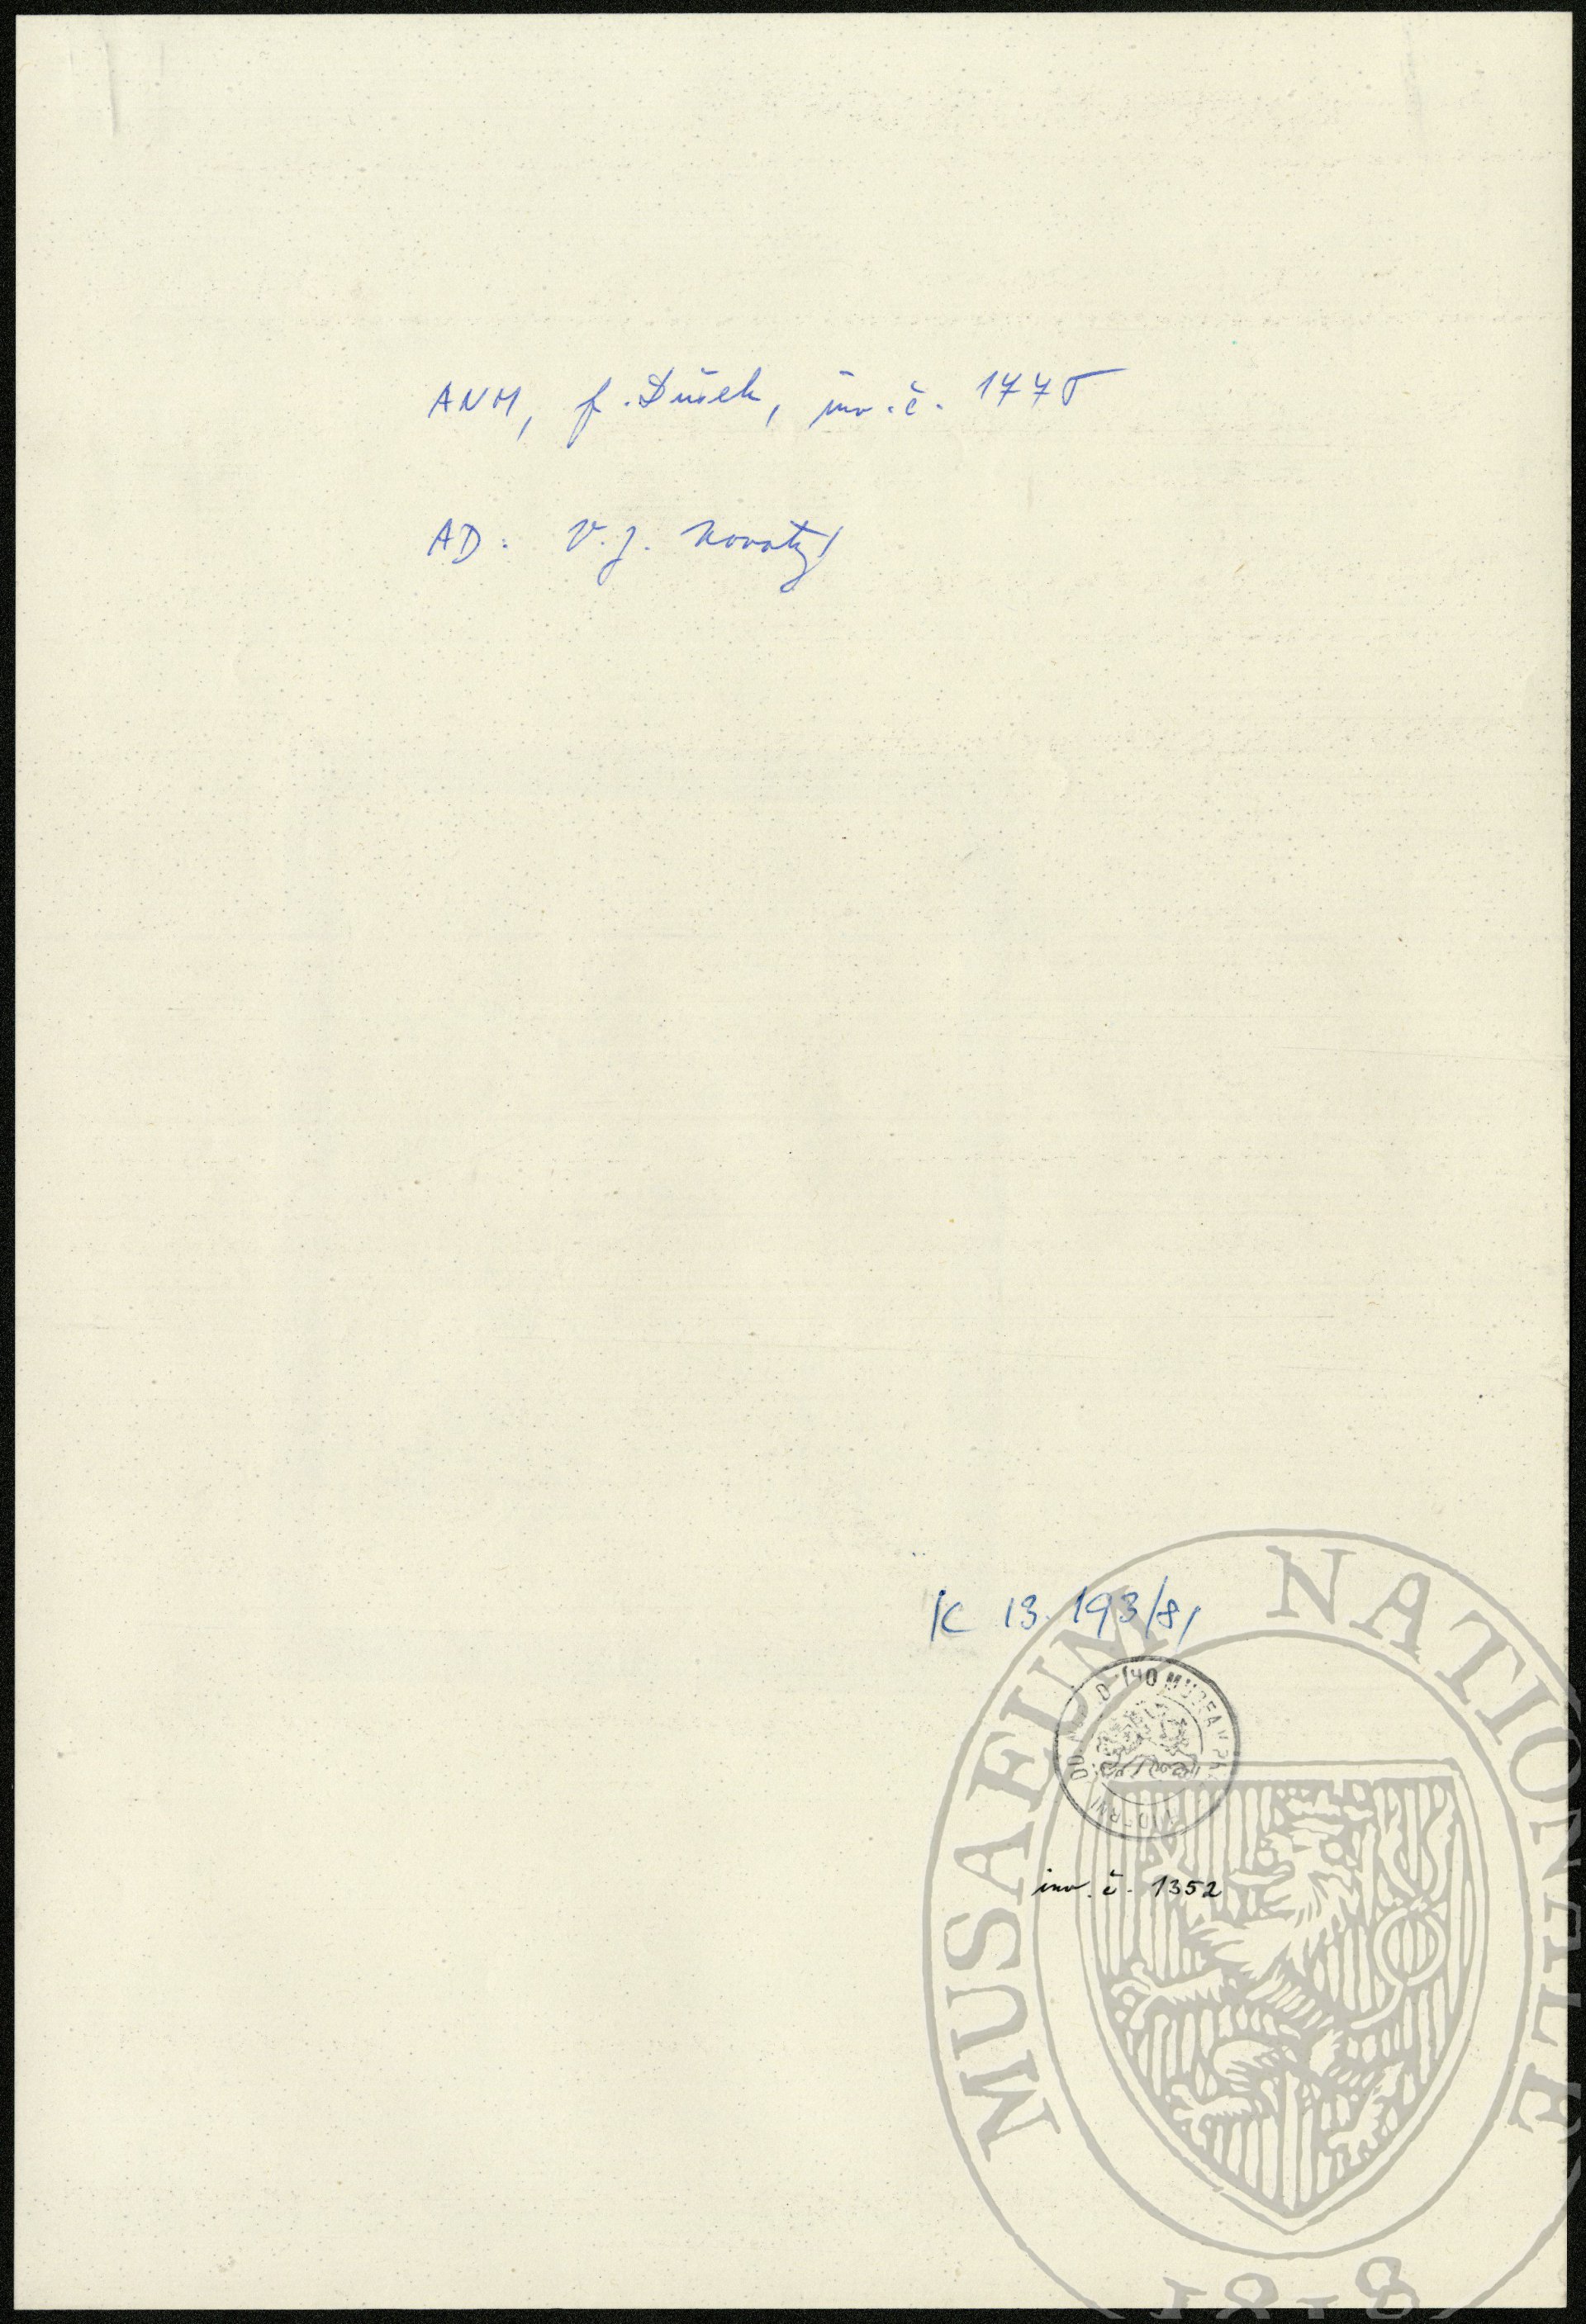 ANM, f. Dušek, inv. č. 1775
AD: V. J. Novotný
K 13.193/81
inv. č. 1352
MUSAEUM NATIONALE
1818